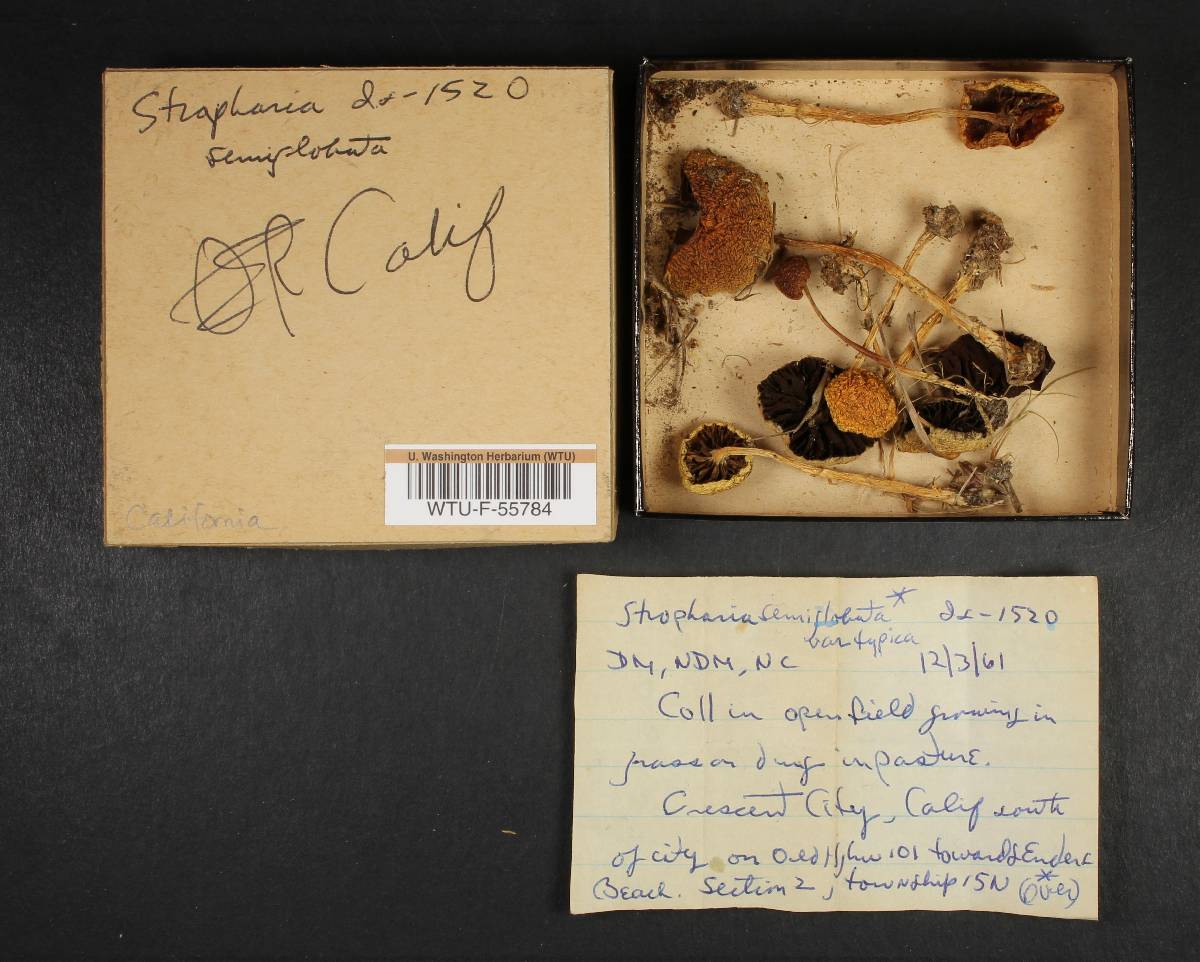 Stropharia Ds-1520
semiglobata
OK Calif
California
U. Washington Herbarium (WTU)
WTU-F-55784
Stropharia semiglobata* Ds-1520
var typica
DM, NDM, NC 12/3/61
Coll in open field growing in
grass on dung in pasture.
Crescent City, Calif south
of city on Old Highw 101 towards Enderts
Beach. Section 2, township 15N (over)*